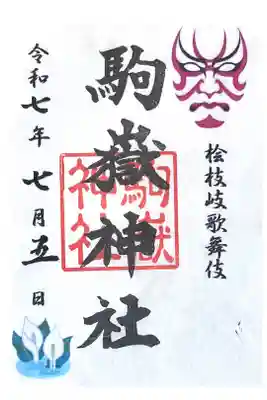 桧枝岐歌舞伎
駒嶽神社
駒嶽神社
令和七年 七月五日